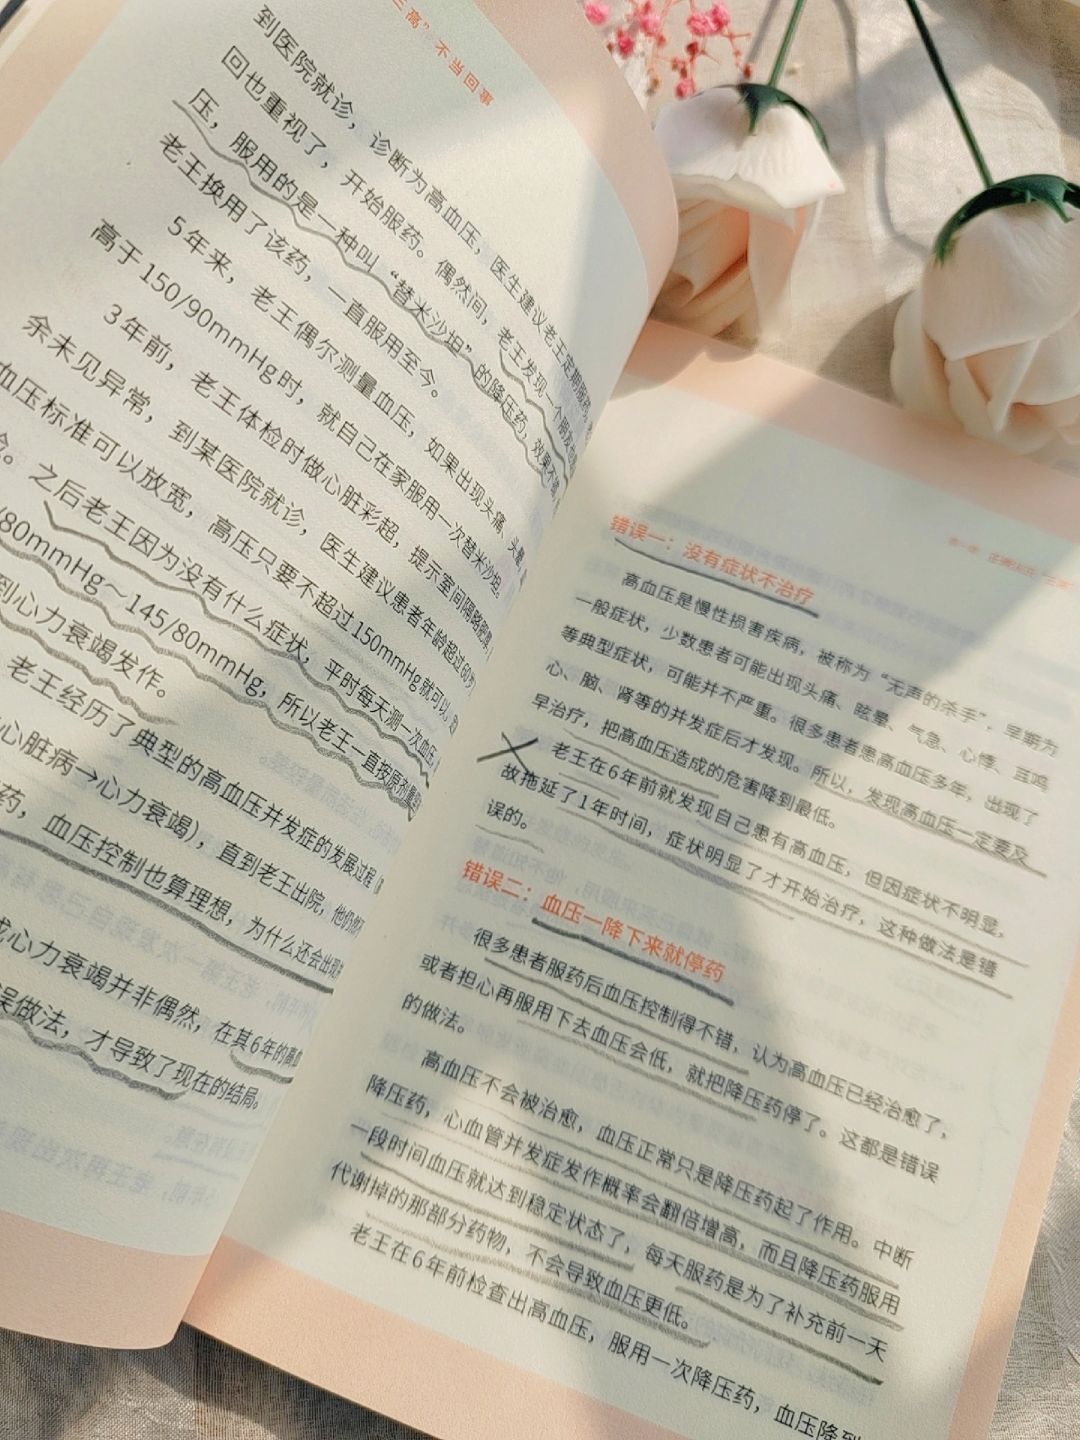 三高”不当回事
到医院就诊，诊断为高血压，医生建议老王定期服药，
回也重视了，开始服药。偶然间，老王发现一个朋友也
压，服用的是一种叫“替米沙坦”的降压药，效果不错，
老王换用了该药，一直服用至今。
5年来，老王偶尔测量血压，如果出现头痛、头晕，
高于150/90mmHg时，就自己在家服用一次替米沙坦。
3年前，老王体检时做心脏彩超，提示室间隔略肥厚，
余未见异常，到某医院就诊，医生建议患者年龄超过60岁
血压标准可以放宽，高压只要不超过150mmHg就可以，
。之后老王因为没有什么症状，平时每天测一次血压，
/80mmHg～145/80mmHg，所以老王一直按原剂量
到心力衰竭发作。
老王经历了典型的高血压并发症的发展过程
心脏病→心力衰竭），直到老王出院，他仍
药，血压控制也算理想，为什么还会出现
心力衰竭并非偶然，在其6年的高血
误做法，才导致了现在的结局。
错误一：没有症状不治疗
高血压是慢性损害疾病，被称为“无声的杀手”，早期为
一般症状，少数患者可能出现头痛、眩晕、气急、心悸、耳鸣
等典型症状，可能并不严重。很多患者患高血压多年，出现了
心、脑、肾等的并发症后才发现。所以，发现高血压一定要及
早治疗，把高血压造成的危害降到最低。
老王在6年前就发现自己患有高血压，但因症状不明显，
故拖延了1年时间，症状明显了才开始治疗，这种做法是错
误的。
错误二：血压一降下来就停药
很多患者服药后血压控制得不错，认为高血压已经治愈了，
或者担心再服用下去血压会低，就把降压药停了。这都是错误
的做法。
高血压不会被治愈，血压正常只是降压药起了作用。中断
降压药，心血管并发症发作概率会翻倍增高，而且降压药服用
一段时间血压就达到稳定状态了，每天服药是为了补充前一天
代谢掉的那部分药物，不会导致血压更低。
老王在6年前检查出高血压，服用一次降压药，血压降到